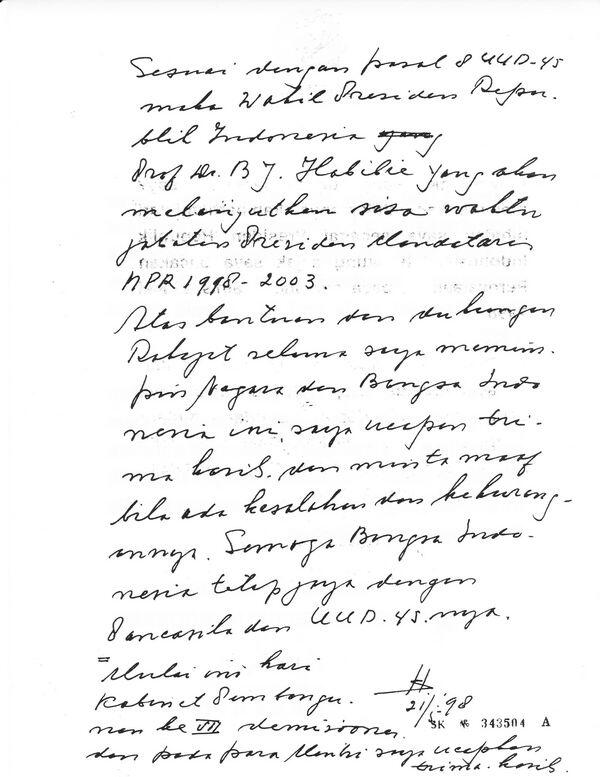 Sesuai dengan pasal 8 UUD-45
maka Wakil Presiden Repu-
blik Indonesia yang
Prof Dr. B J. Habibie yang akan
melanjutkan sisa waktu
jabatan Presiden Mandataris
MPR 1998-2003.
Atas bantuan dan dukungan
Rakyat selama saya memim-
pin Negara dan Bangsa Indo
nesia ini, saya ucapkan tri-
ma kasih. dan minta maaf
bila ada kesalahan dan kekurang-
annya. Semoga Bangsa Indo-
nesia tetap jaya dengan
Pancasila dan UUD-45.nya.
= Mulai ini hari
Kabinet Pembangu-
nan ke VII demisioner
dan pada para Mentri saya ucapkan
trima kasih.
21/5-98
SK № 343504 A